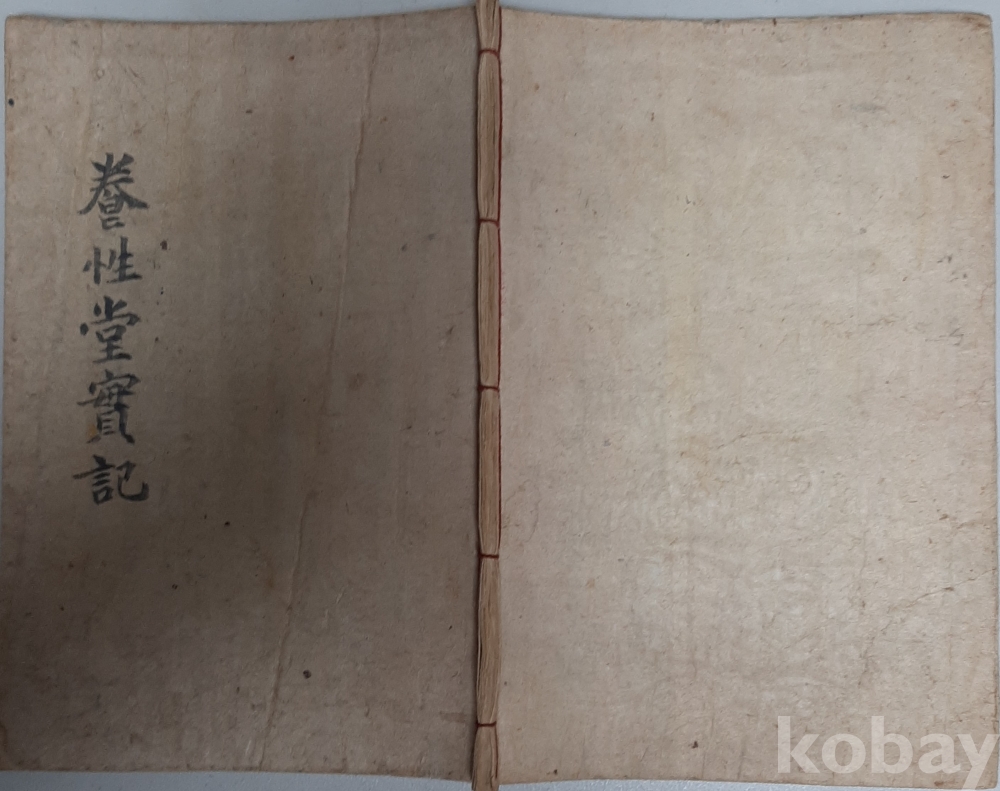 養性堂實記
kobay